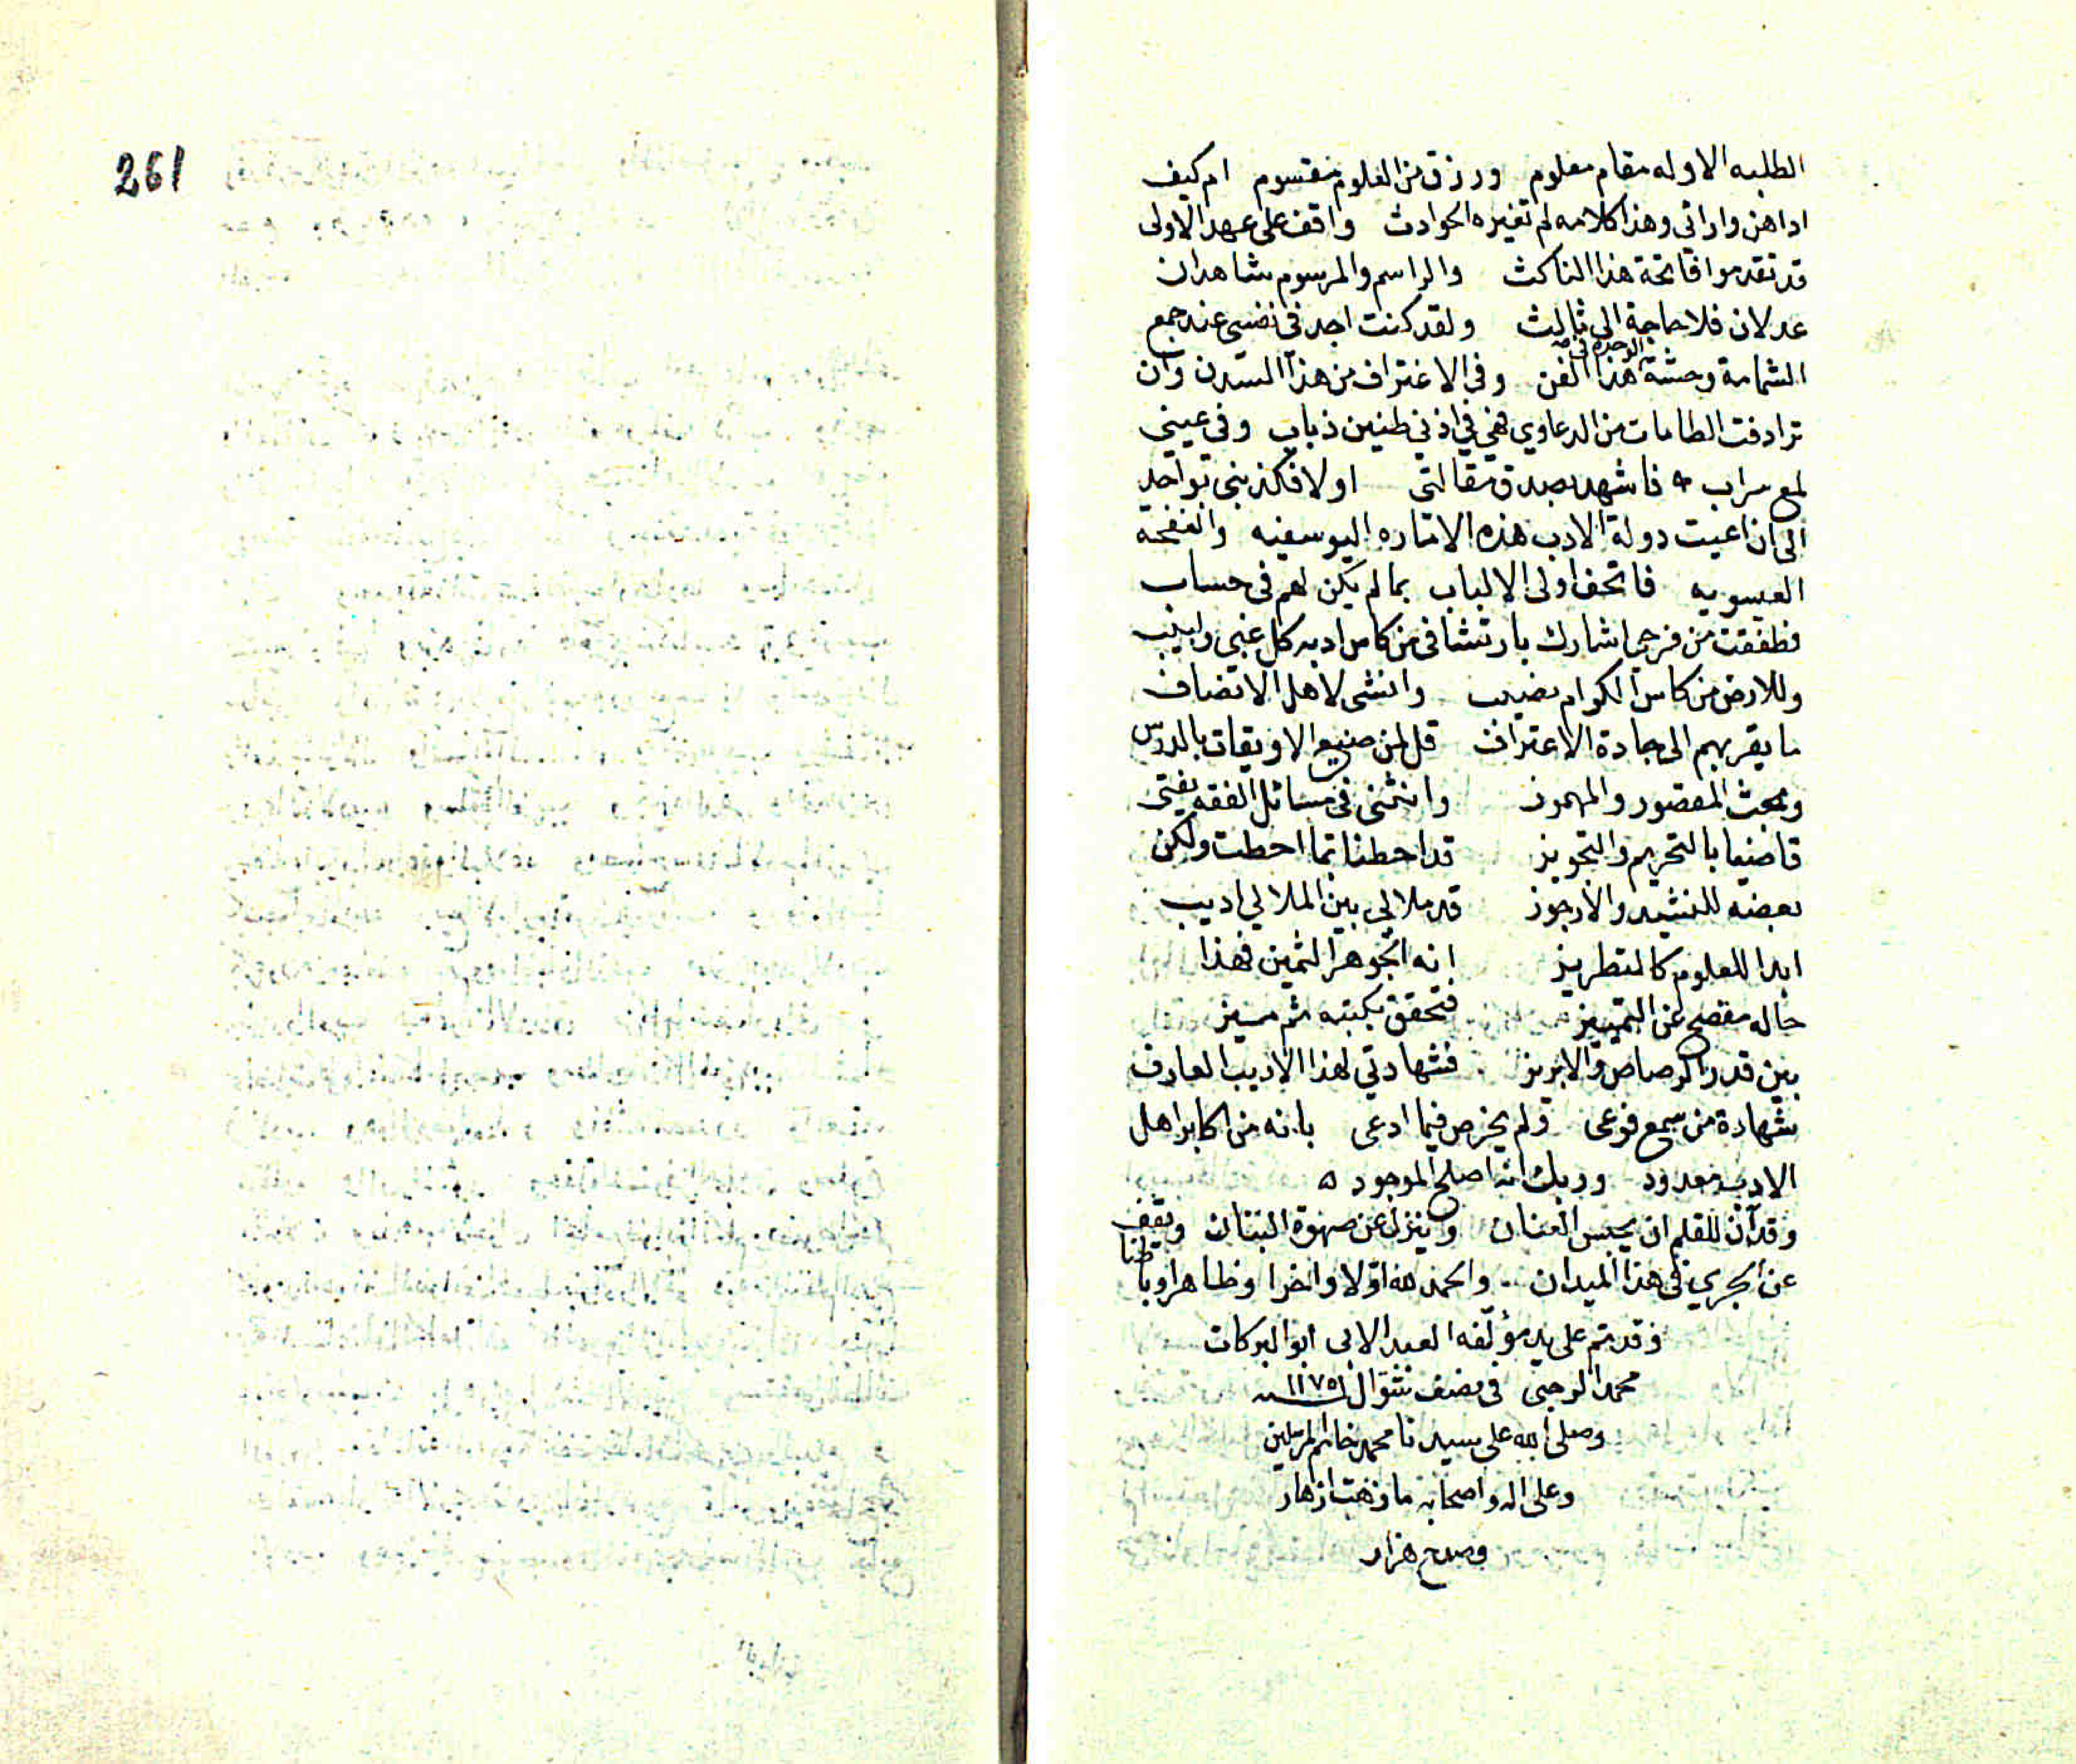 261
الطلبه الاوله مقام معلوم ورزق من العلوم مقسوم ام كيف
اداهن واراتي وهذا كلامه لم تغيره الحوادث واقف على عهد الاولى
قد تقدموا فاتحة هذا الناكث والراسم والمرسوم شاهدان
عدلان فلا حاجة الى ثالث ولقد كنت اجد في نفسي عند جمع
الشمامة وحشة الوحدة في هذا الفن وفي الاغتراف من هذا وان
ترادفت الطامات من الدعاوي فهي في اذني طنين ذباب وفي عيني
لمع سراب فاشهد بصدق مقالتي اولا فكذبني بواحد
الى ان اعيت دولة الادب هذه الاماره اليوسفيه والنفحة
العيسويه فاتحف اولى الالباب بما لم يكن لهم في حساب
فطفقت من فرحي اشارك بارتشافي من كاس ادبه كل غبي ولبيب
وللارض من كاس الكرام نصيب وانشى لاهل الانصاف
ما يقربهم الى جادة الاعتراف قل لمن ضيع الاويقات بالدرس
وبحث المقصور والمهموز وانثنى في مسائل الفقه يفتى
قاضيا بالتحريم والتجويز قد احطنا بما احطت ولكن
بعضه للنشيد والارجوز قد ملا لي بين الملا لي اديب
ابدا للعلوم كالتطريز انه الجوهر الثمين فهذا
حاله مفصح عن التمييز فتحقق بكتبه ثم ميز
بين قدر الرصاص والابريز فشهادتي لهذا الاديب العارف
شهادة من سمع فوعى ولم يخرص فيما ادعى بانه من اكابر اهل
الادب معدود وربك انه اصلح الموجود ه
وقد آن للقلم ان يحبس العنان وينزل عن صهوة البنان ويقف
عن الجري في هذا الميدان والحمد لله اولا واخرا وظاهرا وباطنا
وقد تم على يد مؤلفه العبد الابي ابو البركات
محمد الرحبى في نصف شوال سنه ١١٧٥
وصلى الله على سيدنا محمد خاتم المرسلين
وعلى اله واصحابه ما زهت ازهار
وصدح هزار